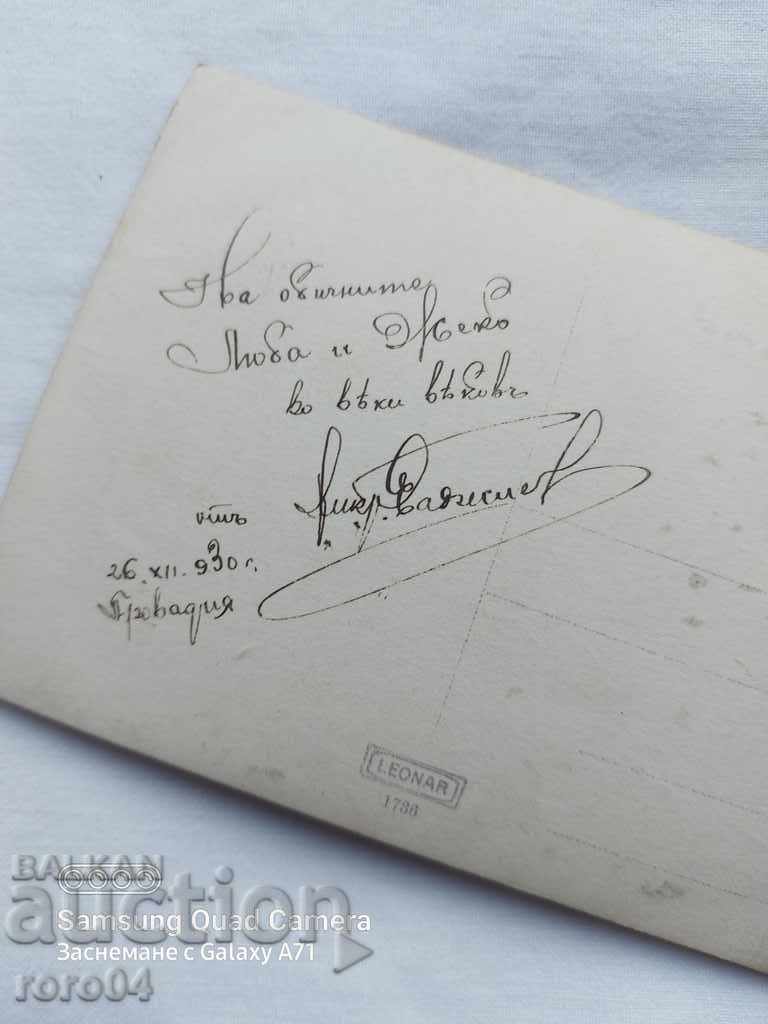 На обичните
Люба и Жеко
во вѣки вѣковъ
отъ
26.XII.930 г.
Провадия
LEONAR
1736
BALKAN
auction
Samsung Quad Camera
Заснемане с Galaxy A71
roro04